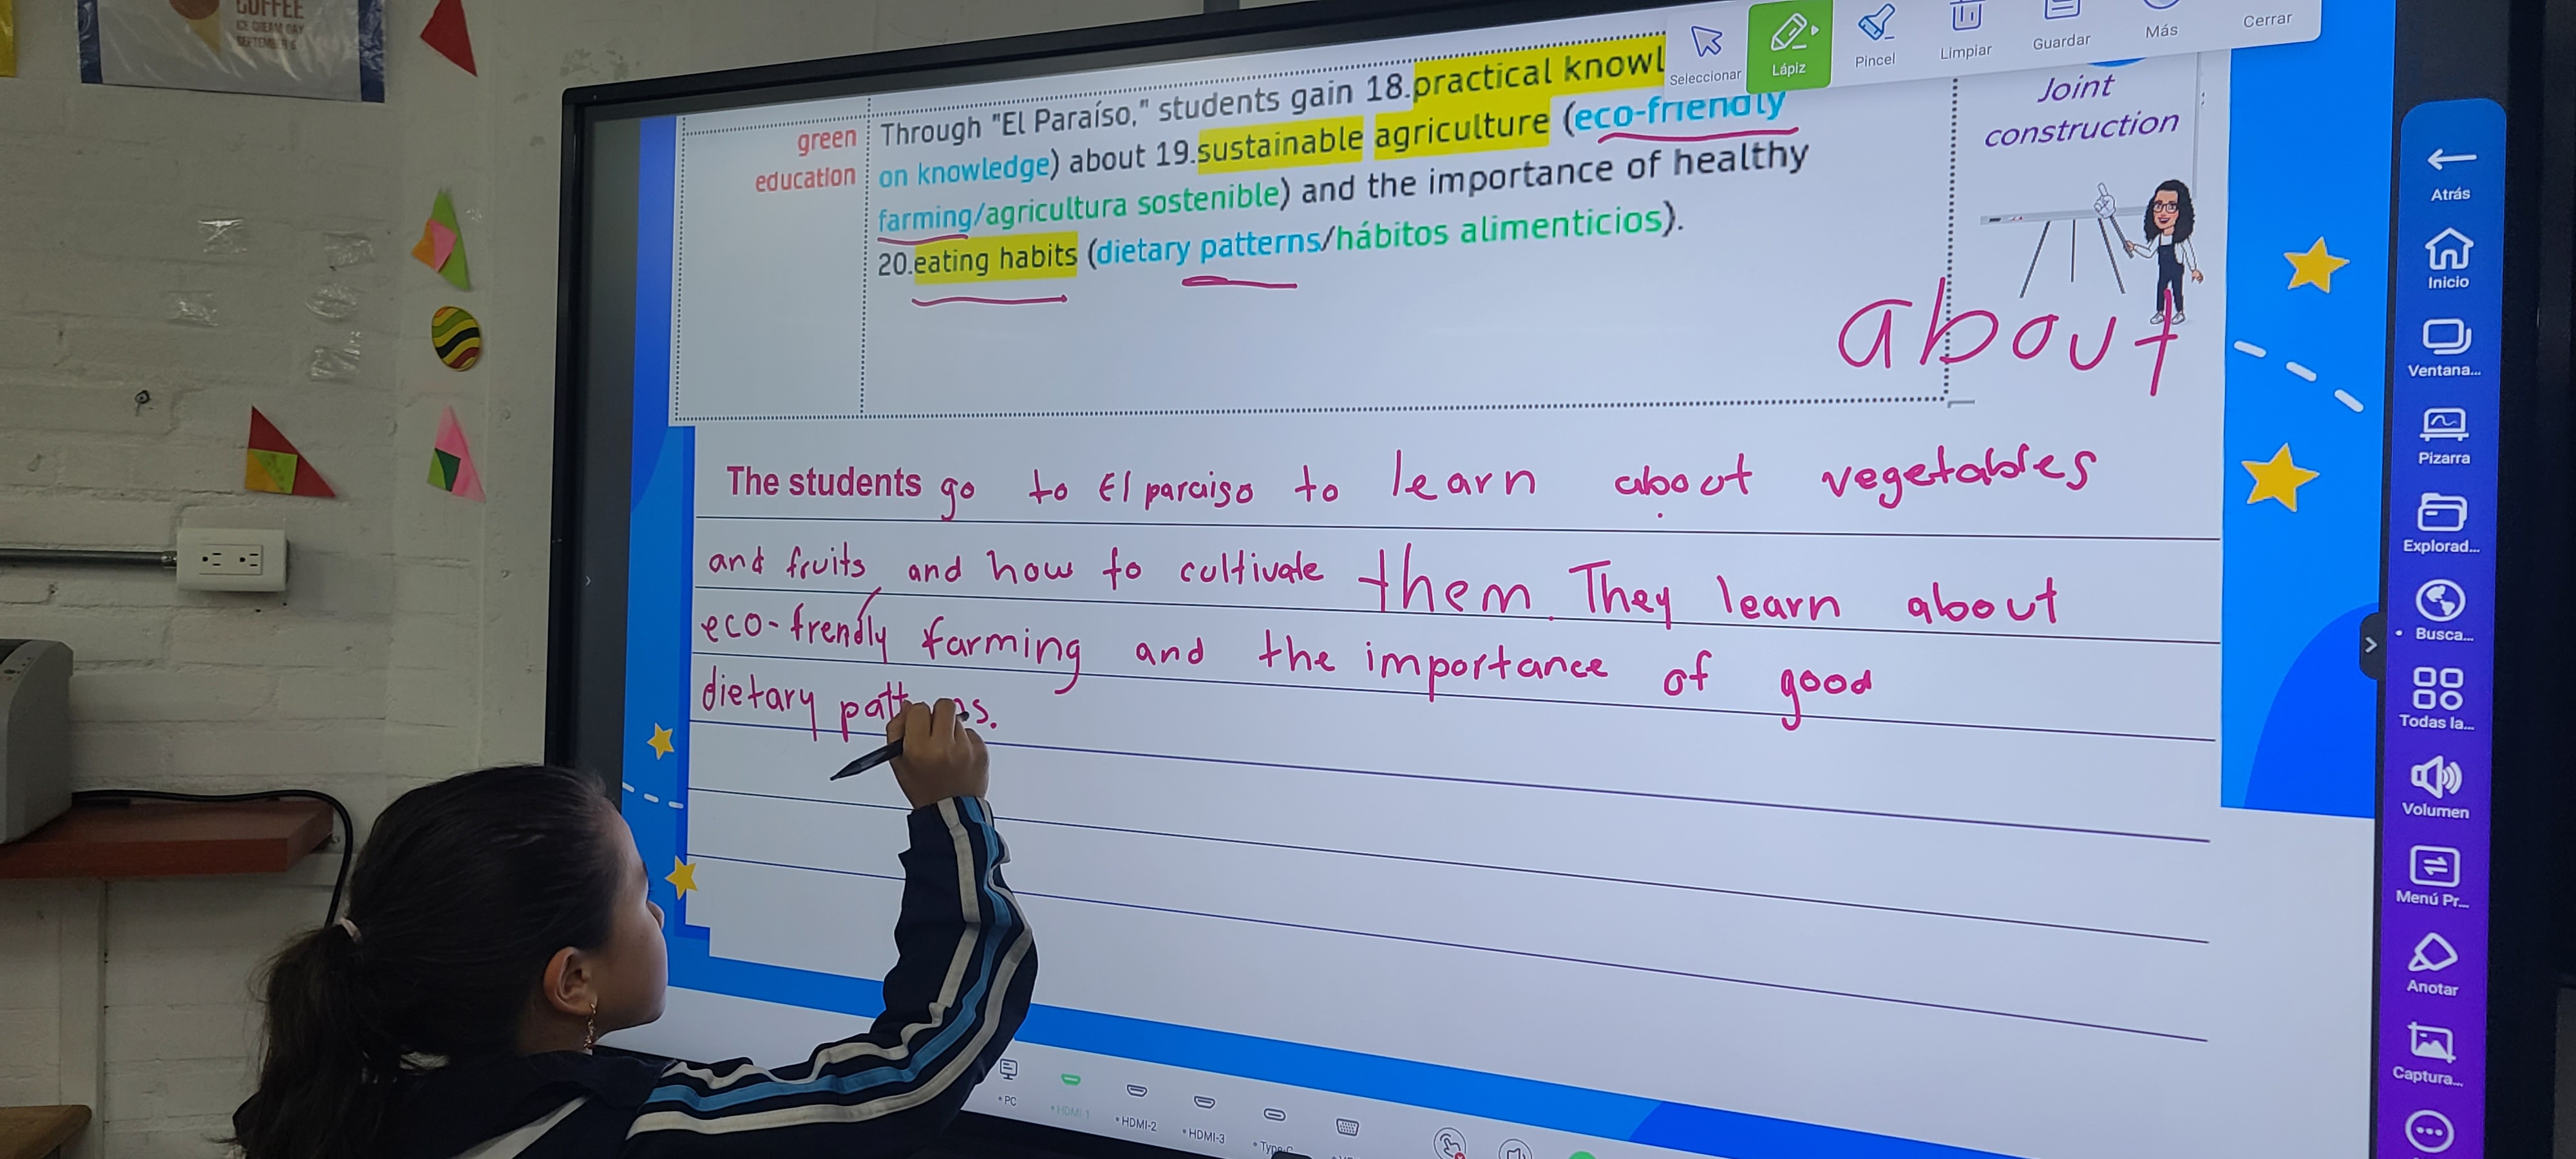 COFFEE
ICE CREAM DAY
SEPTEMBER 6
Seleccionar
Lápiz
Pincel
Limpiar
Guardar
Más
Cerrar
green
education
Through "El Paraíso," students gain 18.practical knowl
on knowledge) about 19.sustainable agriculture (eco-friendly
farming/agricultura sostenible) and the importance of healthy
20.eating habits (dietary patterns/hábitos alimenticios).
Joint
construction
about
The students go to El paraiso to learn about vegetables
and fruits, and how to cultivate them. They learn about
eco-frendly farming and the importance of good
dietary patt ns.
Atrás
Inicio
Ventana...
Pizarra
Explorad...
Busca...
Todas la...
Volumen
Menú Pr...
Anotar
Captura...
PC
HDMI-1
HDMI-2
HDMI-3